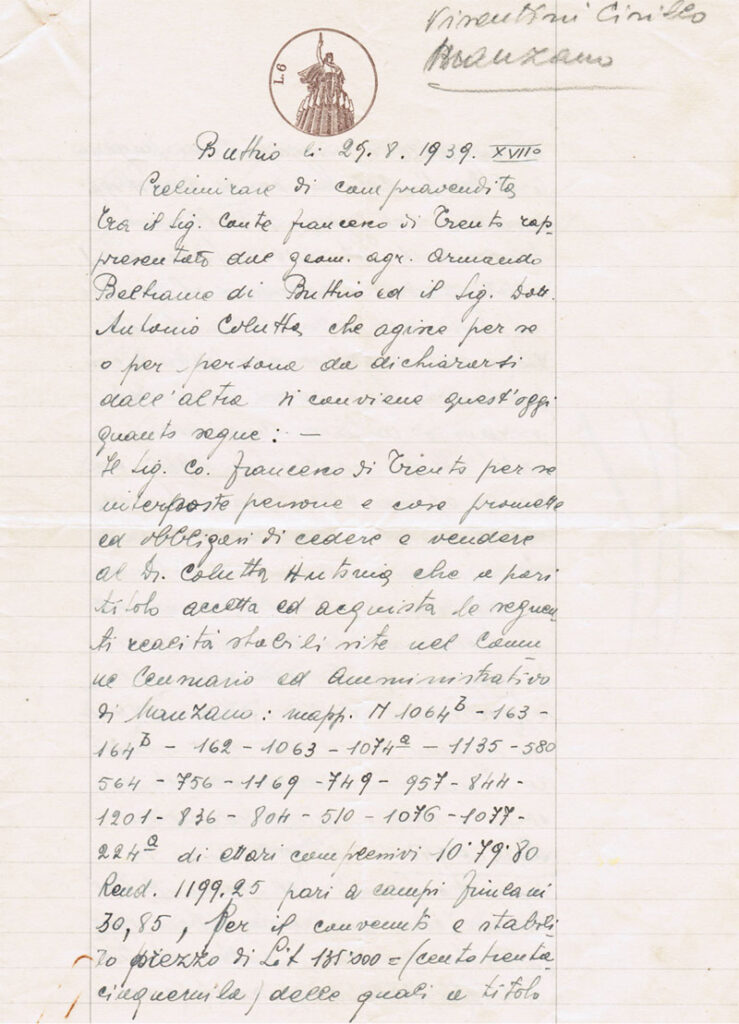 Visentini Cirillo
Manzano
L.6
Buttrio li 25.8.1939. XVII°
Preliminare di compravendita
tra il Sig. Conte Francesco di Trento rap-
presentato dal geom. agr. Armando
Beltrame di Buttrio ed il Sig. Dott.
Antonio Colutta che agisce per se
o per persona da dichiararsi
dall'altra si conviene quest'oggi
quanto segue: —
Il Sig. Co. Francesco di Trento per se
interposte persone e cose promette
ed obbligasi di cedere e vendere
al Dr. Colutta Antonio che a pari
titolo accetta ed acquista le seguen-
ti realità stabili site nel Comu-
ne Censuario ed Amministrativo
di Manzano: mapp. N 1064b - 163 -
164b - 162 - 1063 - 1074a - 1135 - 580
564 - 756 - 1169 - 749 - 957 - 844 -
1201 - 836 - 804 - 510 - 1076 - 1077 -
224a di ettari complessivi 10.79.80
Rend. 1199.25 pari a campi friulani
30,85, Per il convenuto e stabili-
to prezzo di Lit 135.000 = (centotrenta-
cinquemila) delle quali a titolo